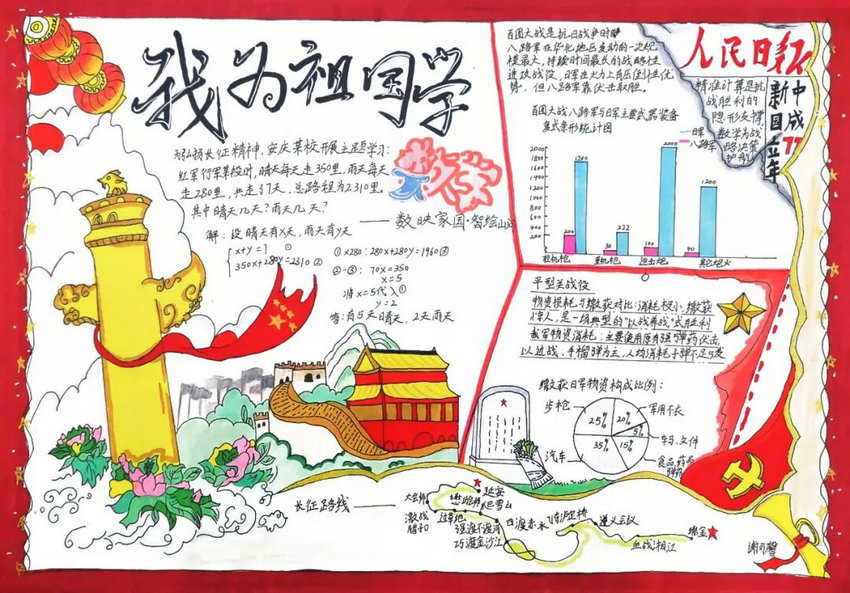 我为祖国学
为弘扬长征精神，安庆某校开展主题学习：
红军行军某段时，晴天每天走350里，雨天每天
走280里，共走了7天，总路程为2310里。
其中晴天几天？雨天几天？
数学
——数映家国·智绘山河
解：设晴天有x天，雨天有y天
x+y=7 ①
350x+280y=2310 ②
①×280：280x+280y=1960③
②-③：70x=350
x=5
将x=5代入①
y=2
答：有5天晴天，2天雨天
百团大战是抗日战争时期
八路军在华北地区发动的一次规
模最大，持续时间最长的战略性
进攻战役，日军在火力上占压倒性优
势，但八路军靠伏击取胜。
百团大战八路军与日军主要武器装备
复式条形统计图
日军
八路军
2000
1800
1600
1400
1200
1000
800
600
400
200
0
200
1780
30
222
100
2000
40
1200
轻机枪
重机枪
人民日报
新中
国成
立77
年
精准计算是抗
战胜利的
隐形支撑
数学为战
略决策
护航
平型关战役
物资损耗与缴获对比：消耗极小，缴获
惊人，是一场典型的“以战养战”式胜利
我军物资消耗：主要使用原有弹药伏击
以近战、手榴弹为主，人均消耗子弹不足5发
缴获日军物资构成比例：
步枪
军用大衣
25%
20%
5%
35%
15%
汽车
食品药品
长征路线——
大会师
激战
腊子口
延安
过草地
强渡大渡河
巧渡金沙江
四渡赤水
飞夺泸定桥
遵义会议
血战湘江
瑞金